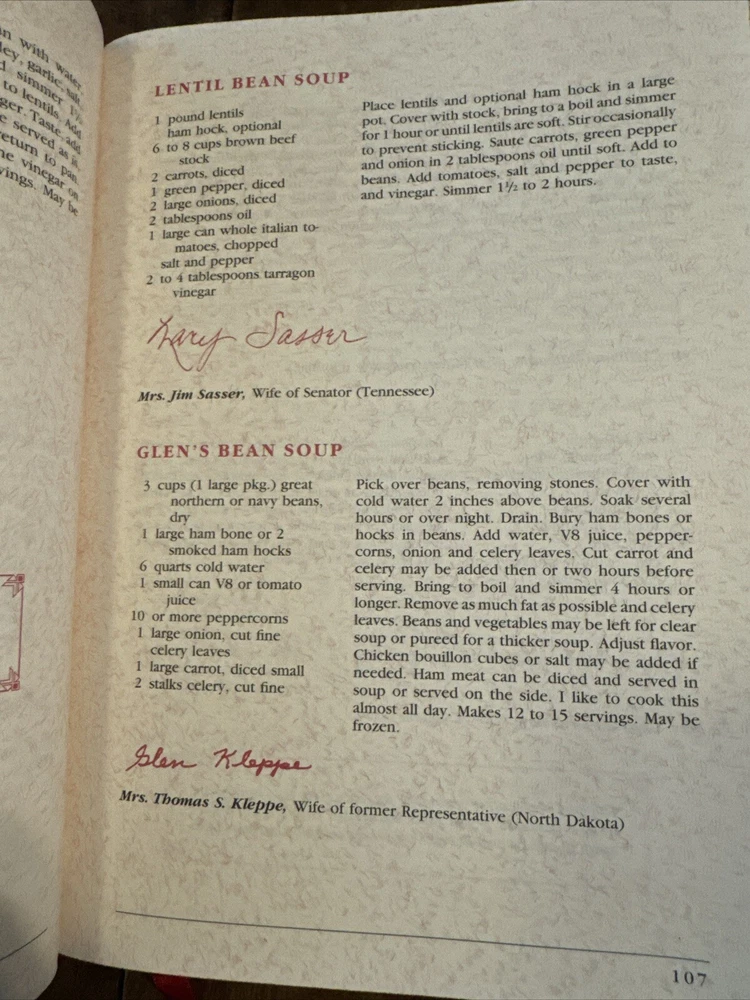 n with water
ley, garlic, salt
d simmer 1½
to lentils. Add
ger. Taste, add
e served as is
return to pan
ne vinegar on
vings. May be
LENTIL BEAN SOUP
1 pound lentils
ham hock, optional
6 to 8 cups brown beef
stock
2 carrots, diced
1 green pepper, diced
2 large onions, diced
2 tablespoons oil
1 large can whole italian to-
matoes, chopped
salt and pepper
2 to 4 tablespoons tarragon
vinegar
Place lentils and optional ham hock in a large
pot. Cover with stock, bring to a boil and simmer
for 1 hour or until lentils are soft. Stir occasionally
to prevent sticking. Saute carrots, green pepper
and onion in 2 tablespoons oil until soft. Add to
beans. Add tomatoes, salt and pepper to taste,
and vinegar. Simmer 1½ to 2 hours.
Mary Sasser
Mrs. Jim Sasser, Wife of Senator (Tennessee)
GLEN'S BEAN SOUP
3 cups (1 large pkg.) great
northern or navy beans,
dry
1 large ham bone or 2
smoked ham hocks
6 quarts cold water
1 small can V8 or tomato
juice
10 or more peppercorns
1 large onion, cut fine
celery leaves
1 large carrot, diced small
2 stalks celery, cut fine
Pick over beans, removing stones. Cover with
cold water 2 inches above beans. Soak several
hours or over night. Drain. Bury ham bones or
hocks in beans. Add water, V8 juice, pepper-
corns, onion and celery leaves. Cut carrot and
celery may be added then or two hours before
serving. Bring to boil and simmer 4 hours or
longer. Remove as much fat as possible and celery
leaves. Beans and vegetables may be left for clear
soup or pureed for a thicker soup. Adjust flavor.
Chicken bouillon cubes or salt may be added if
needed. Ham meat can be diced and served in
soup or served on the side. I like to cook this
almost all day. Makes 12 to 15 servings. May be
frozen.
Glen Kleppe
Mrs. Thomas S. Kleppe, Wife of former Representative (North Dakota)
107